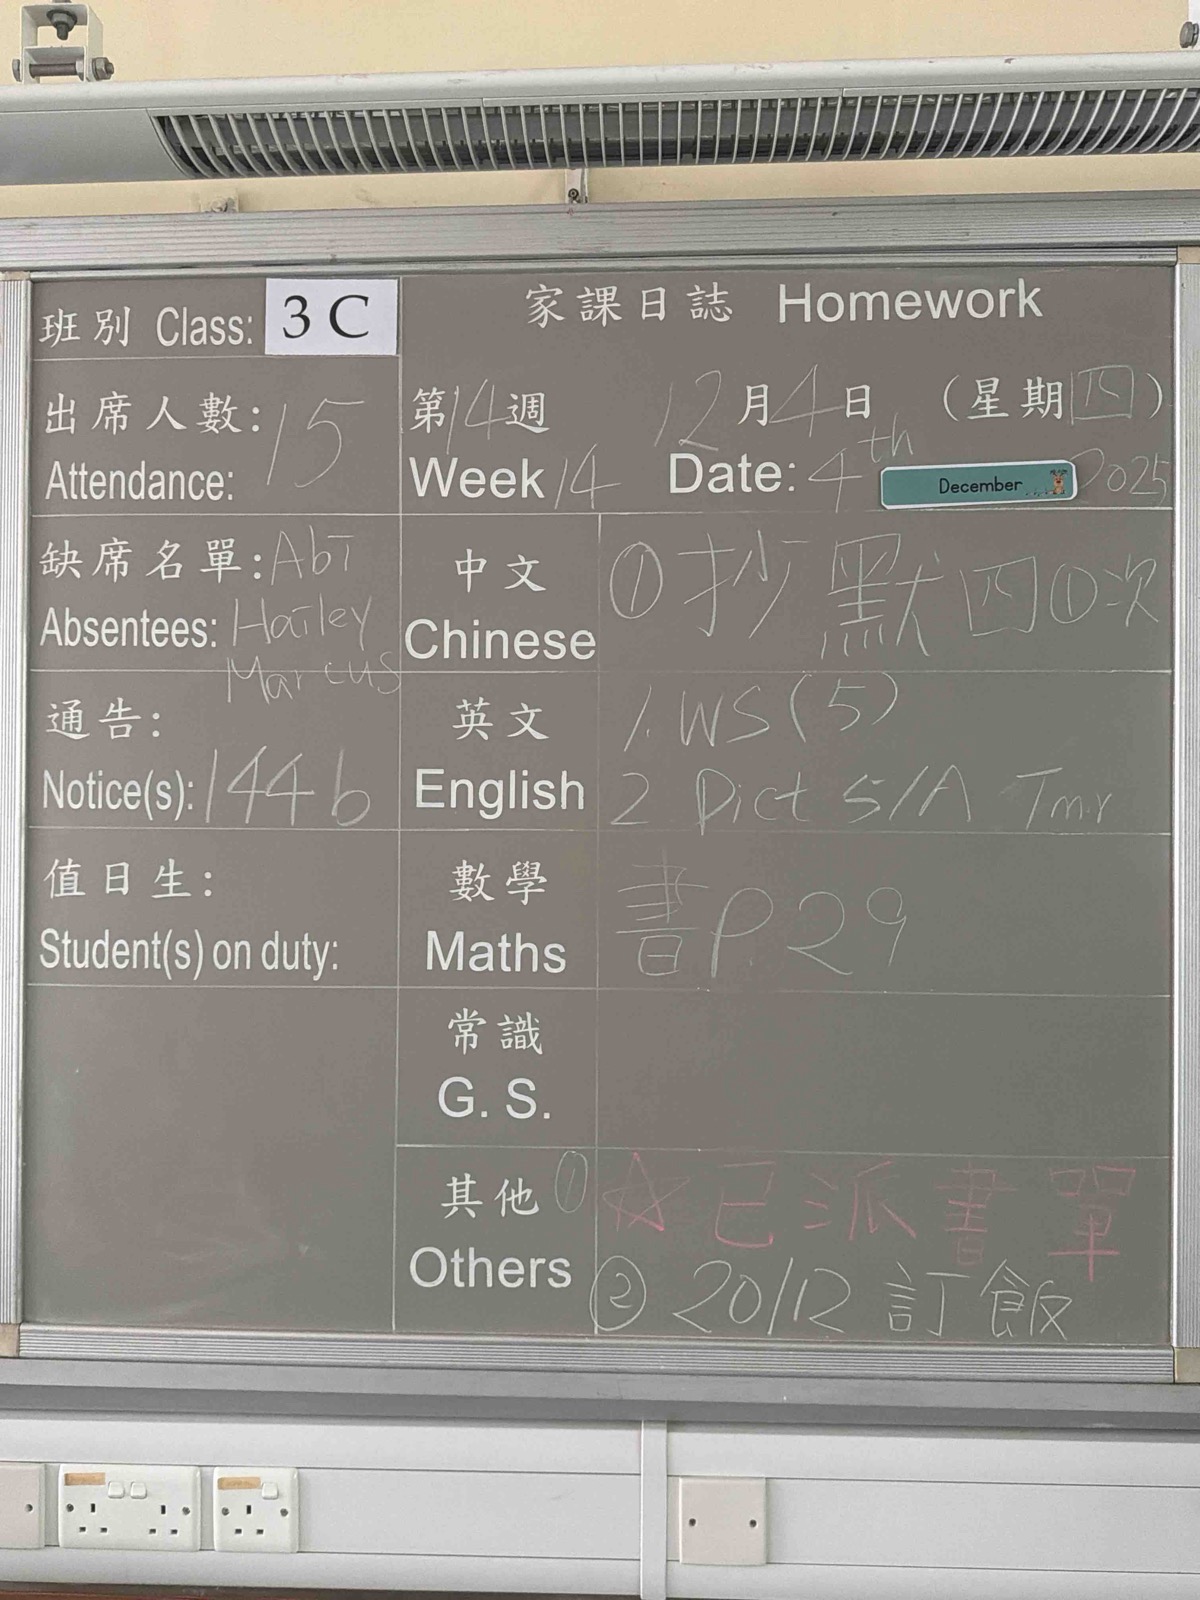 班別 Class: 3 C
出席人數: 15
Attendance:
缺席名單: Abi
Absentees: Hailey
Marcus
通告:
Notice(s): 144b
值日生:
Student(s) on duty:
家課日誌 Homework
第14週 12月4日 (星期四)
Week 14 Date: 4th December 2025
中文
Chinese
① 抄默四①次
英文
English
1. WS (5)
2 Dict 5/A Tmr
數學
Maths
書P.29
常識
G. S.
其他
Others
① ☆ 已派書單
② 20/12 訂飯